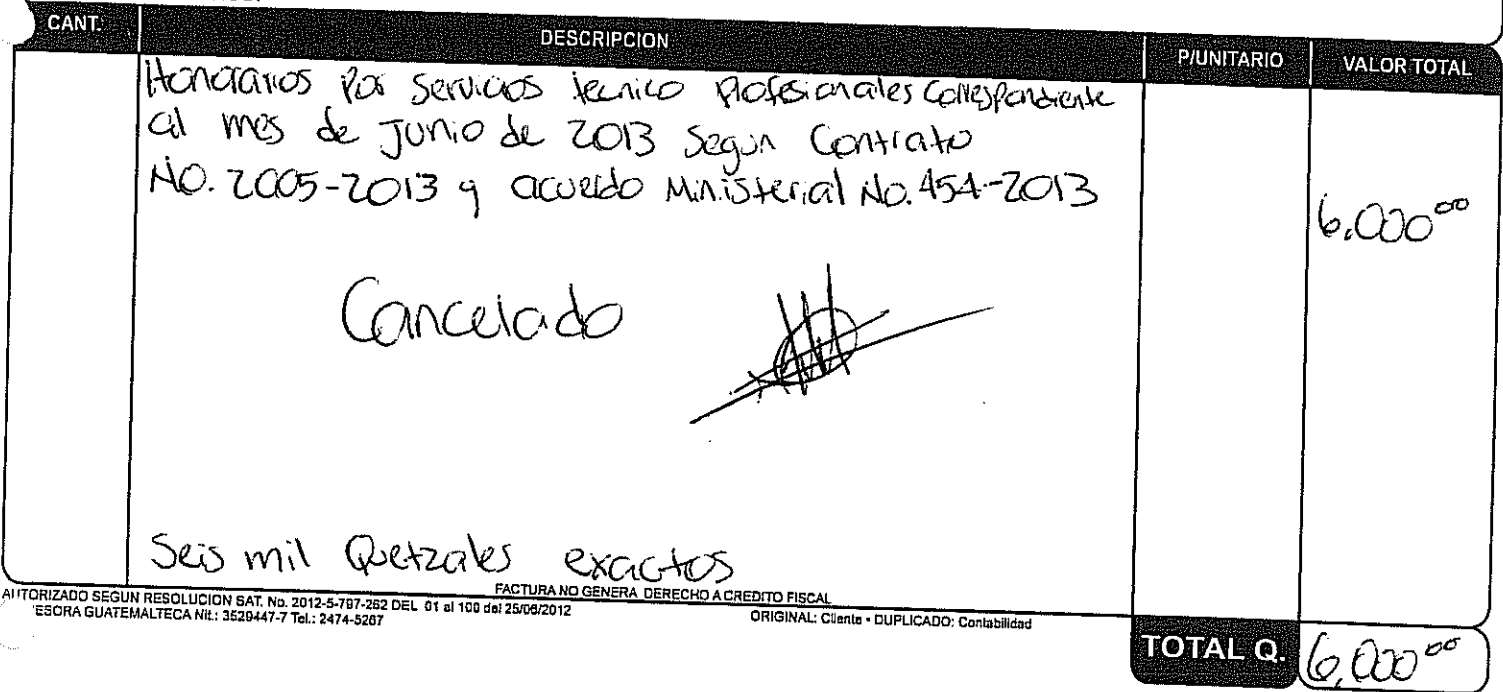 CANT. DESCRIPCION P/UNITARIO VALOR TOTAL
Honorarios por Servicios tecnico profesionales correspondiente
al mes de Junio de 2013 Segun Contrato
No. 2005-2013 y acuerdo Ministerial No. 454-2013
6,000.00
Cancelado
Seis mil Quetzales exactos
FACTURA NO GENERA DERECHO A CREDITO FISCAL
AUTORIZADO SEGUN RESOLUCION SAT. No. 2012-5-797-262 DEL 01 al 100 del 25/06/2012
ESORA GUATEMALTECA Nit.: 3529447-7 Tel.: 2474-5267 ORIGINAL: Cliente • DUPLICADO: Contabilidad
TOTAL Q. 6,000.00